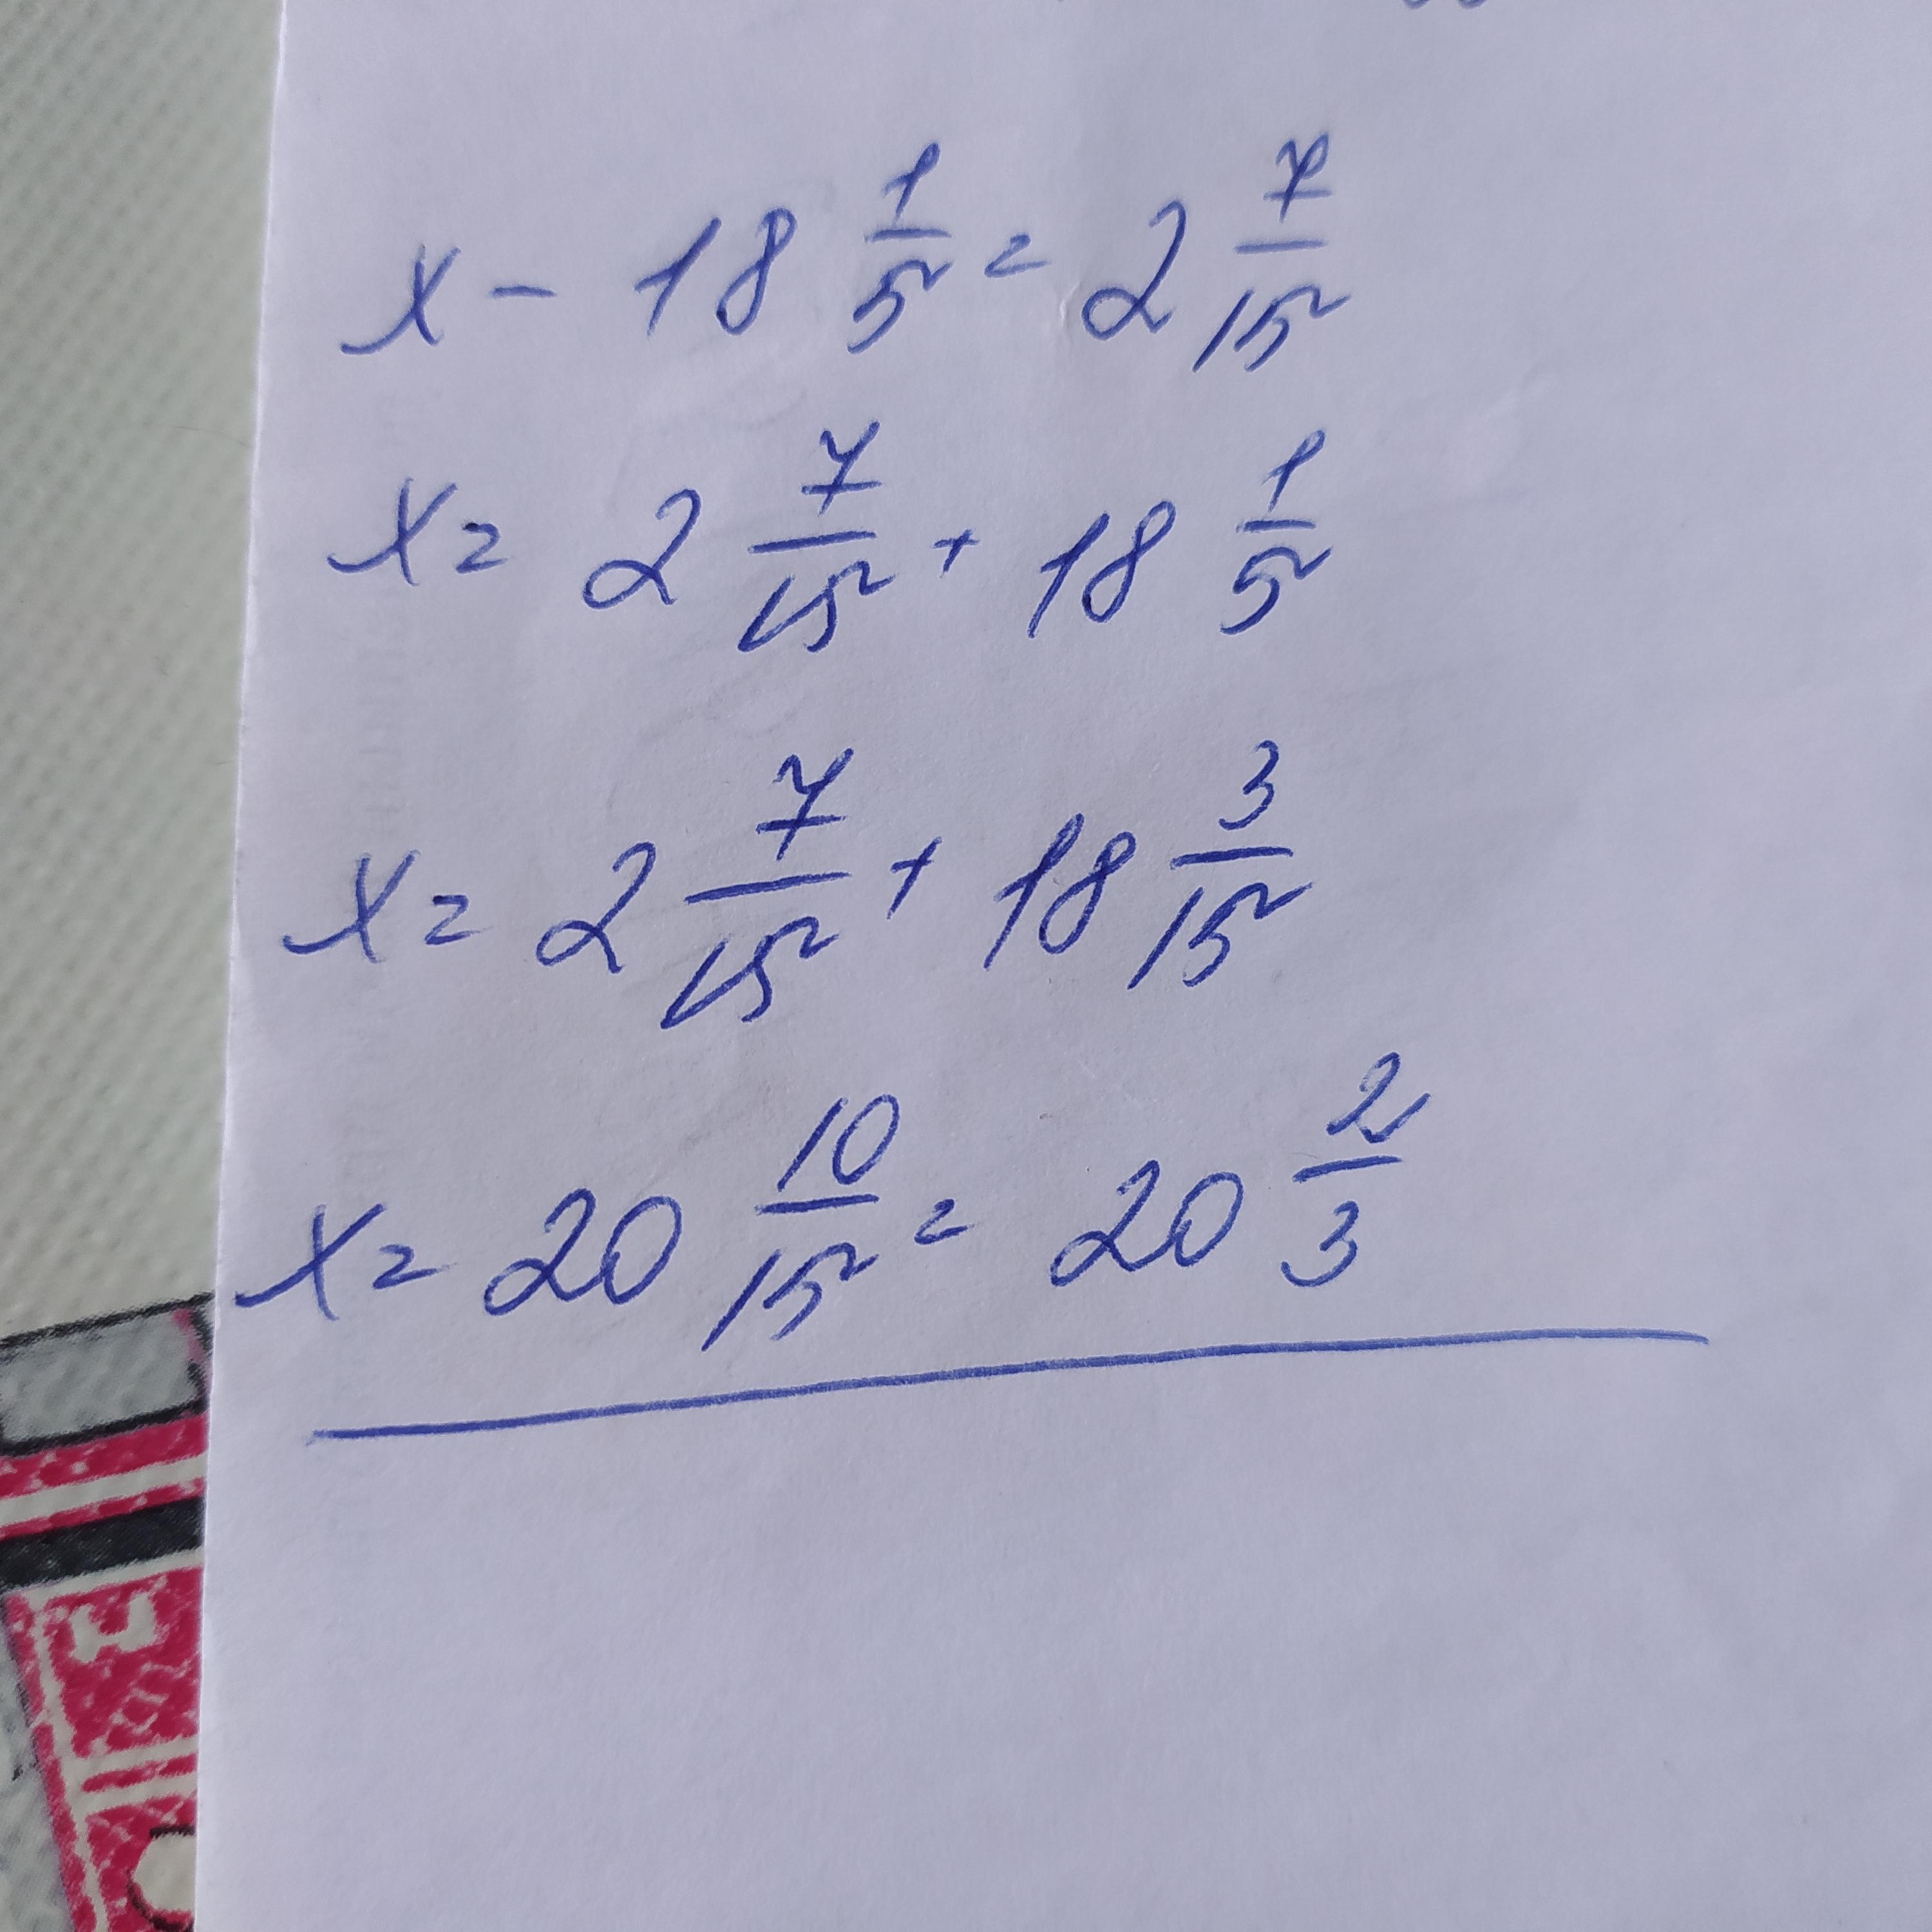 x - 18 1/5 = 2 7/15
x = 2 7/15 + 18 1/5
x = 2 7/15 + 18 3/15
x = 20 10/15 = 20 2/3